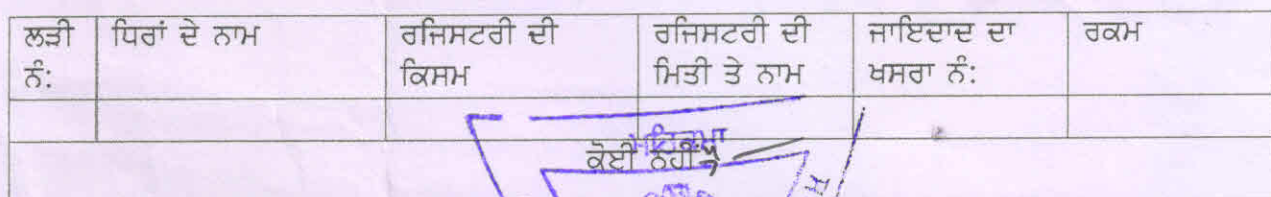 ਲੜੀ ਨੰ: ਧਿਰਾਂ ਦੇ ਨਾਮ ਰਜਿਸਟਰੀ ਦੀ ਕਿਸਮ ਰਜਿਸਟਰੀ ਦੀ ਮਿਤੀ ਤੇ ਨਾਮ ਜਾਇਦਾਦ ਦਾ ਖਸਰਾ ਨੰ: ਰਕਮ
ਕੋਈ ਨਹੀਂ